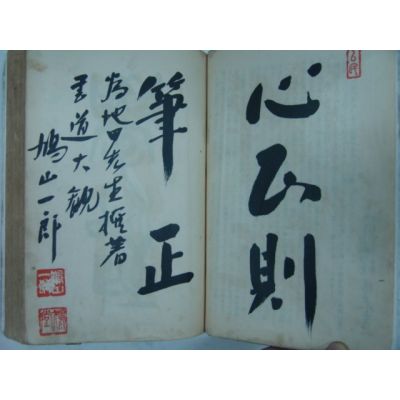 心正則
筆正
為地田先生撰著
書道大観
鳩山一郎